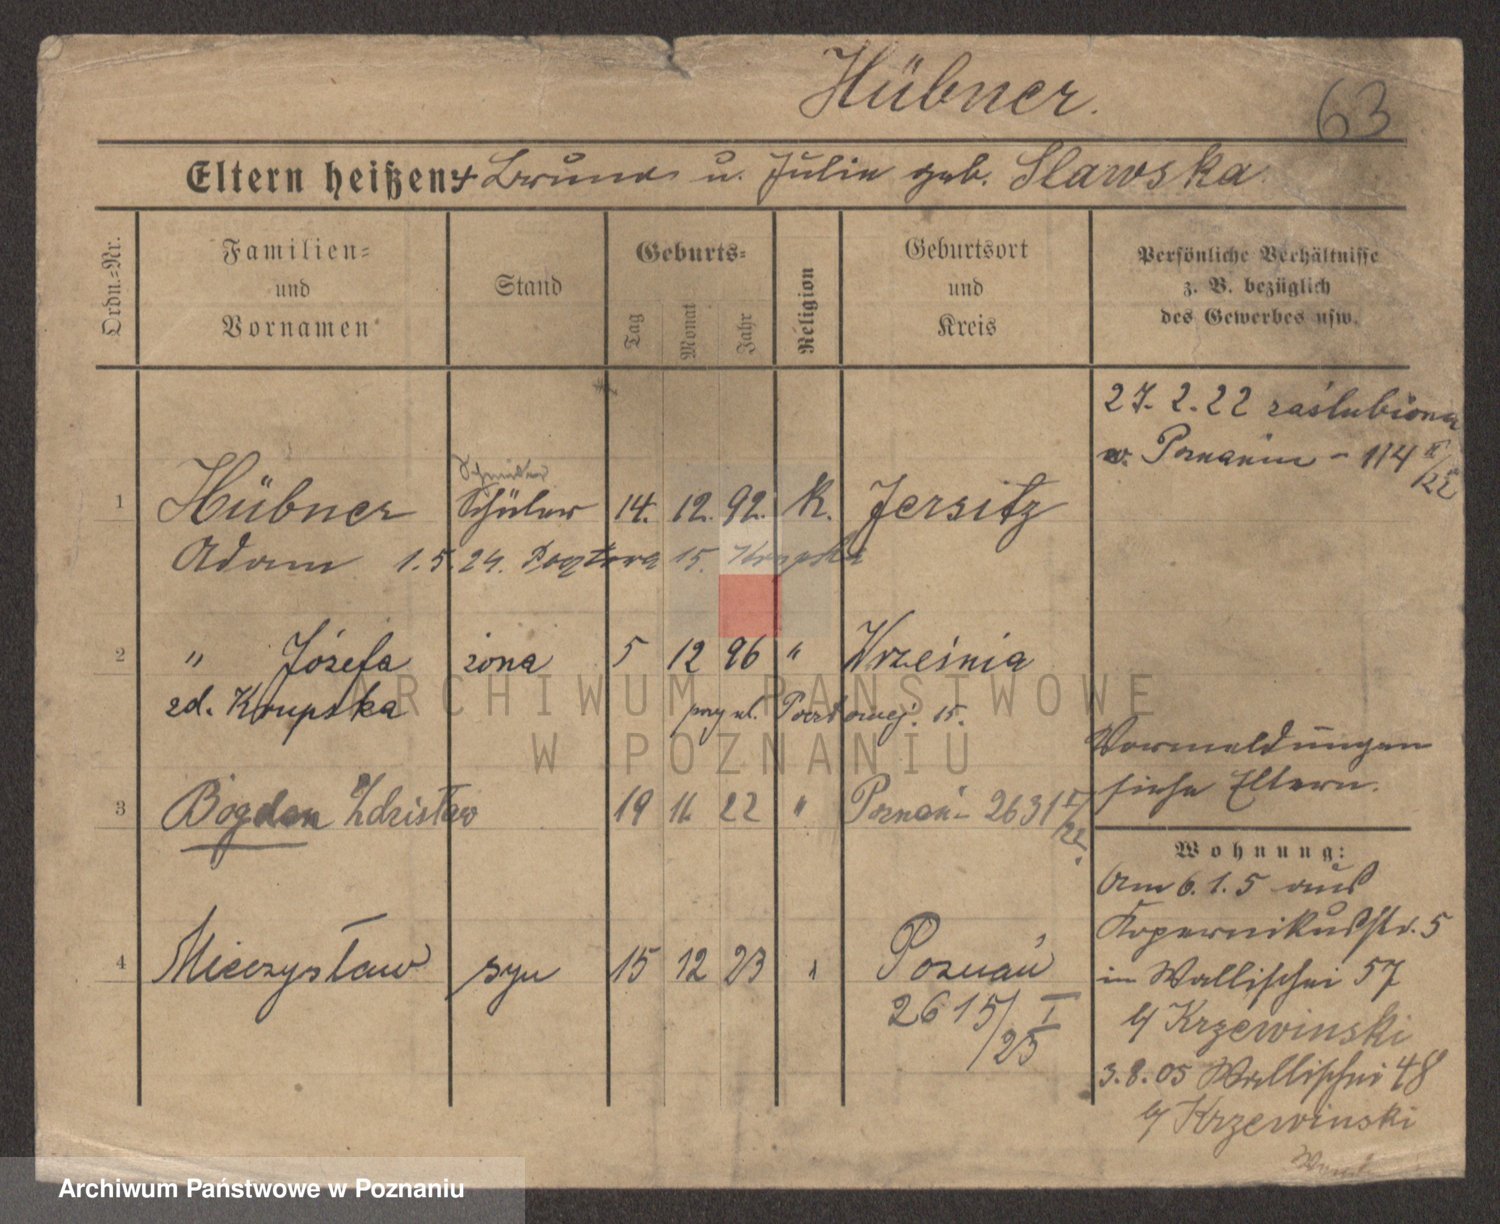 Hübner.
63
Eltern heißen: + Bruno u. Julie geb. Slawska
Ordn.=Nr.
Familien=
und
Vornamen
Stand
Geburts=
Tag
Monat
Jahr
Religion
Geburtsort
und
Kreis
Persönliche Verhältnisse
z. B. bezüglich
des Gewerbes usw.
27. 2. 22 zaślubiona
w. Poznaniu - 114 II/22
1 Hübner Schüler 14. 12. 92. K. Jersitz
Adam 1.5.24. Pocztowa 15. Krupska
2 " Józefa żona 5 12 96 " Września
zd. Krupska przy ul. Pocztowej. 15.
Vormeldungen
siehe Eltern.
3 Bogdan Zdzisław 19 11 22 " Poznań - 2631 I/22
Wohnung:
Am 6. 1. 5 aus
Kopernikusstr. 5
in Wallischei 57
b/ Krzewinski
3. 8. 05 Wallischei 48
b/ Krzewinski
4 Mieczysław syn 15 12 23 " Poznań
2615/I/25
ARCHIWUM PAŃSTWOWE
W POZNANIU
Archiwum Państwowe w Poznaniu